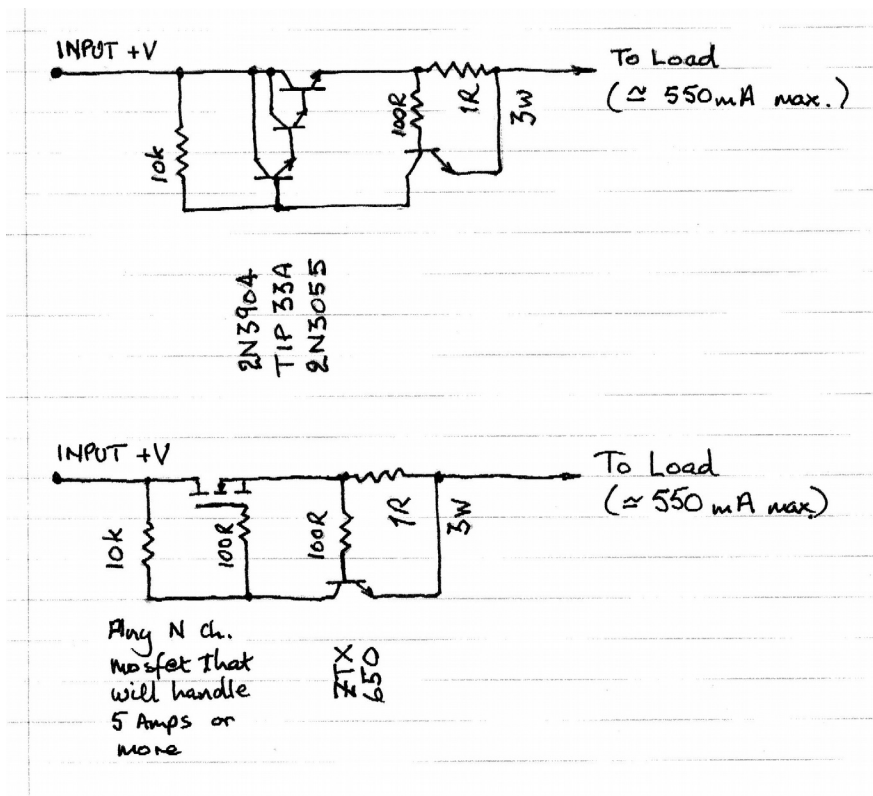 INPUT +V
To Load
(≃ 550mA max.)
10k
100R
1R
3W
2N3904
TIP 33A
2N3055
INPUT +V
To Load
(≃ 550mA max)
10k
100R
100R
1R
3W
Any N Ch.
mosfet that
will handle
5 Amps or
more
ZTX
650